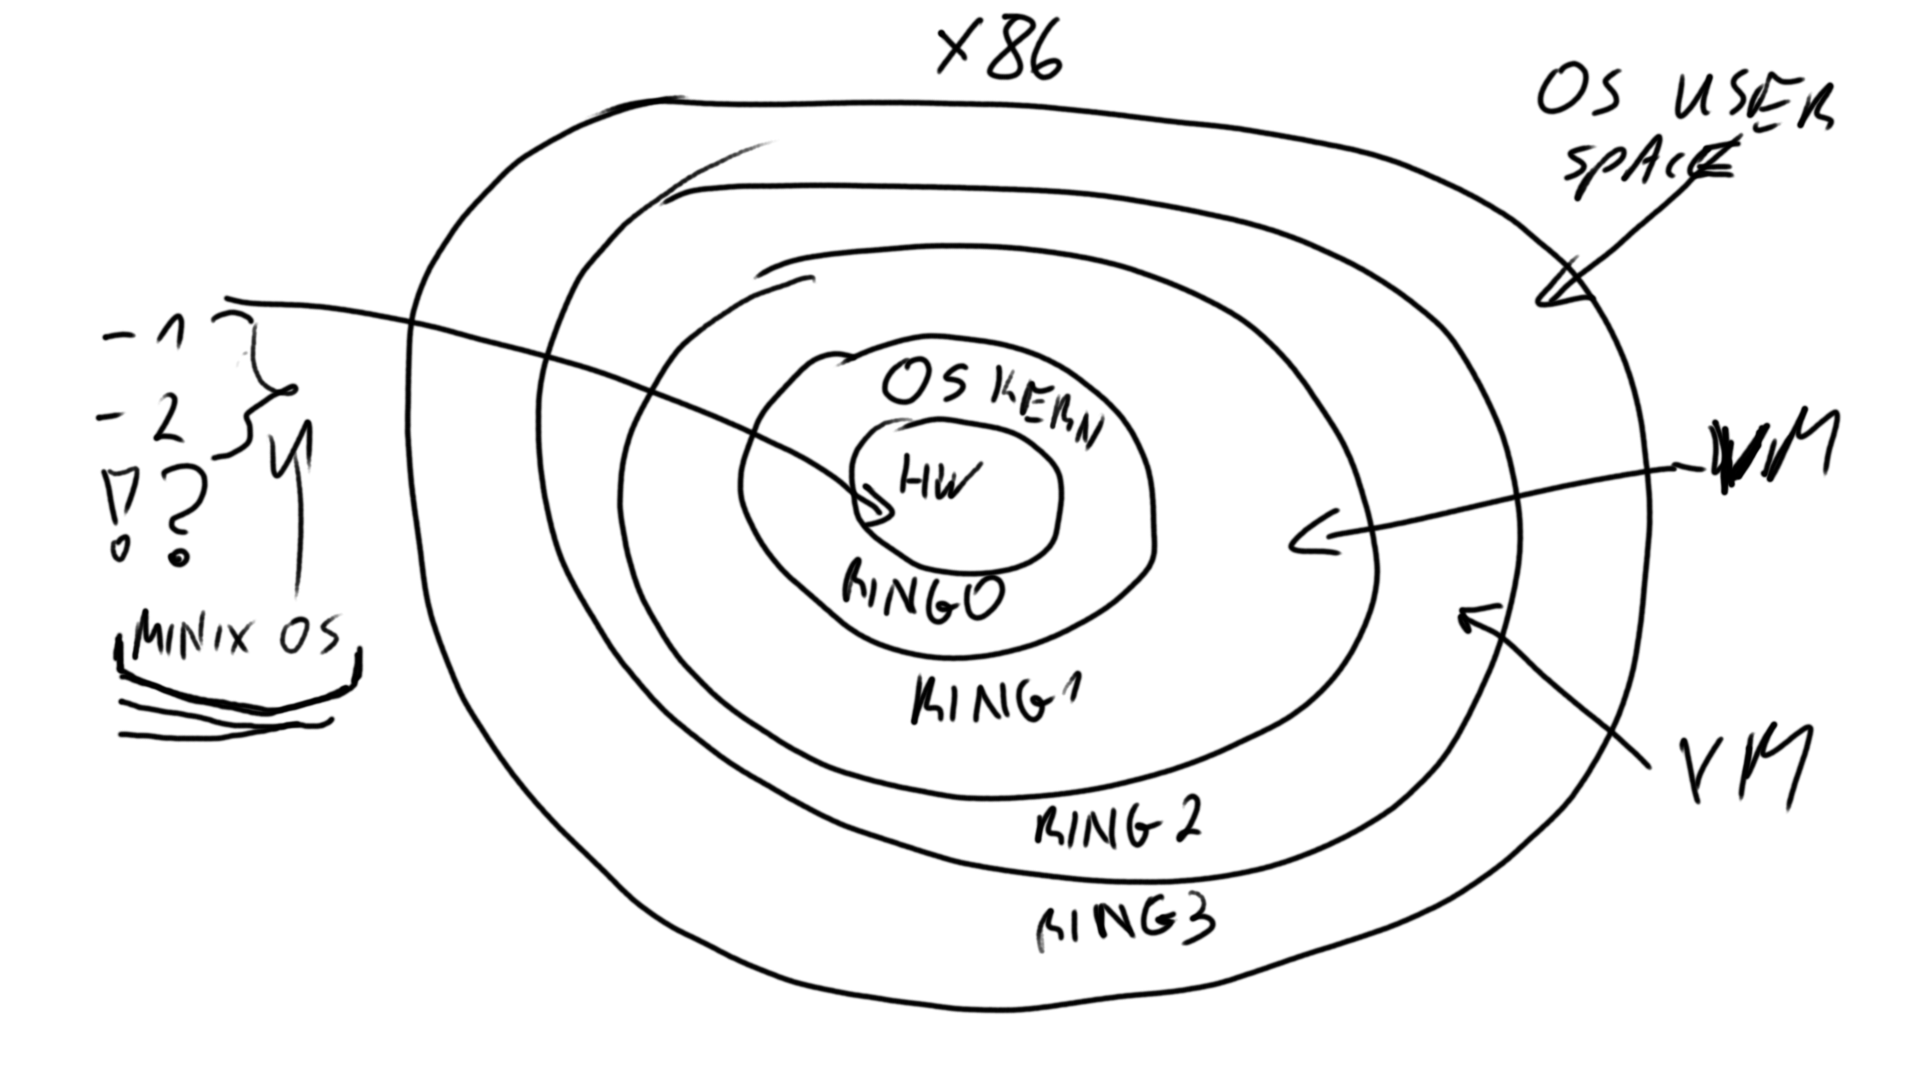 X86
OS USER
SPACE
-1
-2
!?
MINIX OS
OS KERN
HW
RING0
RING1
RING2
RING3
VM
VM